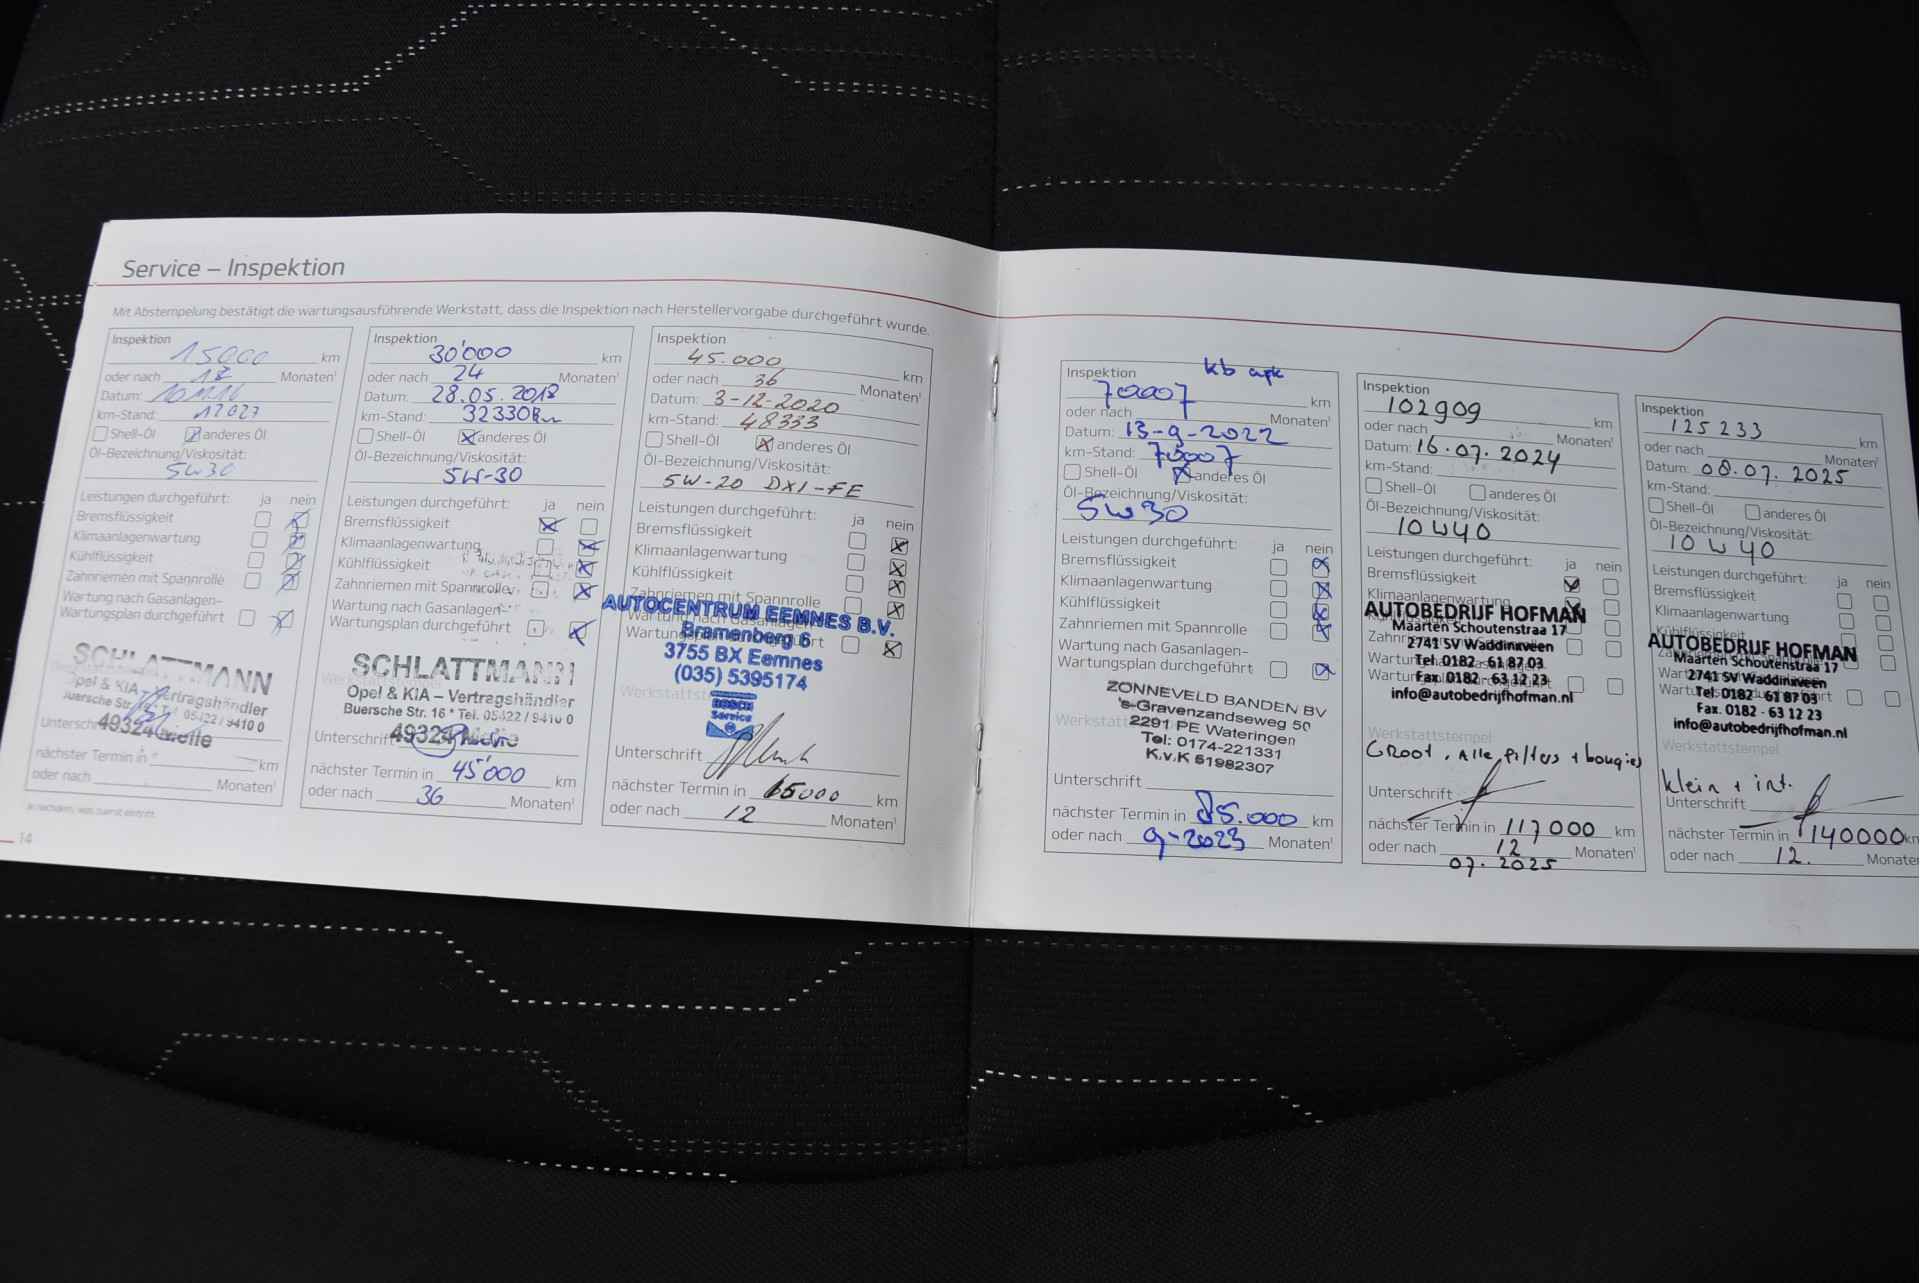 Service – Inspektion
Mit Abstempelung bestätigt die wartungsausführende Werkstatt, dass die Inspektion nach Herstellervorgabe durchgeführt wurde.
Inspektion
15000 km
oder nach 12 Monaten¹
Datum:
km-Stand: 12027
Shell-Öl anderes Öl
Öl-Bezeichnung/Viskosität:
5W30
Leistungen durchgeführt: ja nein
Bremsflüssigkeit
Klimaanlagenwartung
Kühlflüssigkeit
Zahnriemen mit Spannrolle
Wartung nach Gasanlagen–
Wartungsplan durchgeführt
SCHLATTMANN
Opel & KIA – Vertragshändler
Buersche Str. 16 * Tel. 05422 / 9410 0
49324 Melle
Unterschrift
nächster Termin in km
oder nach Monaten¹
Je nachdem, was zuerst eintritt.
14
Inspektion
30'000 km
oder nach 24 Monaten¹
Datum: 28.05.2018
km-Stand: 32330km
Shell-Öl anderes Öl
Öl-Bezeichnung/Viskosität:
5W-30
Leistungen durchgeführt: ja nein
Bremsflüssigkeit
Klimaanlagenwartung
Kühlflüssigkeit
Zahnriemen mit Spannrolle
Wartung nach Gasanlagen–
Wartungsplan durchgeführt
SCHLATTMANN
Opel & KIA – Vertragshändler
Buersche Str. 16 * Tel. 05422 / 9410 0
49324 Melle
Unterschrift
nächster Termin in 45'000 km
oder nach 36 Monaten¹
Inspektion
45.000 km
oder nach 36 Monaten¹
Datum: 3-12-2020
km-Stand: 48333
Shell-Öl anderes Öl
Öl-Bezeichnung/Viskosität:
5W-20 DX1-FE
Leistungen durchgeführt: ja nein
Bremsflüssigkeit
Klimaanlagenwartung
Kühlflüssigkeit
Zahnriemen mit Spannrolle
Wartung nach Gasanlagen–
Wartungsplan durchgeführt
AUTOCENTRUM EEMNES B.V.
Bramenberg 6
3755 BX Eemnes
(035) 5395174
BOSCH
Service
Unterschrift
nächster Termin in 65000 km
oder nach 12 Monaten¹
kb apk
Inspektion
70007 km
oder nach Monaten¹
Datum: 13-9-2022
km-Stand: 70007
Shell-Öl anderes Öl
Öl-Bezeichnung/Viskosität:
5W30
Leistungen durchgeführt: ja nein
Bremsflüssigkeit
Klimaanlagenwartung
Kühlflüssigkeit
Zahnriemen mit Spannrolle
Wartung nach Gasanlagen–
Wartungsplan durchgeführt
ZONNEVELD BANDEN BV
's-Gravenzandseweg 50
2291 PE Wateringen
Tel: 0174-221331
K.v.K 51982307
Unterschrift
nächster Termin in 85.000 km
oder nach 9-2023 Monaten¹
Inspektion
102909 km
oder nach Monaten¹
Datum: 16.07.2024
km-Stand:
Shell-Öl anderes Öl
Öl-Bezeichnung/Viskosität:
10W40
Leistungen durchgeführt: ja nein
Bremsflüssigkeit
Klimaanlagenwartung
AUTOBEDRIJF HOFMAN
Maarten Schoutenstraa 17
2741 SV Waddinxveen
Tel. 0182 - 61 87 03
Fax. 0182 - 63 12 23
info@autobedrijfhofman.nl
Werkstattstempel
Groot, Alle filters + bougies
Unterschrift
nächster Termin in 117000 km
oder nach 12 Monaten¹
07.2025
Inspektion
125233 km
oder nach Monaten¹
Datum: 08.07.2025
km-Stand:
Shell-Öl anderes Öl
Öl-Bezeichnung/Viskosität:
10W40
Leistungen durchgeführt: ja nein
Bremsflüssigkeit
Klimaanlagenwartung
Kühlflüssigkeit
AUTOBEDRIJF HOFMAN
Maarten Schoutenstraa 17
2741 SV Waddinxveen
Tel. 0182 - 61 87 03
Fax. 0182 - 63 12 23
info@autobedrijfhofman.nl
Werkstattstempel
Klein + int.
Unterschrift
nächster Termin in 140000 km
oder nach 12. Monaten